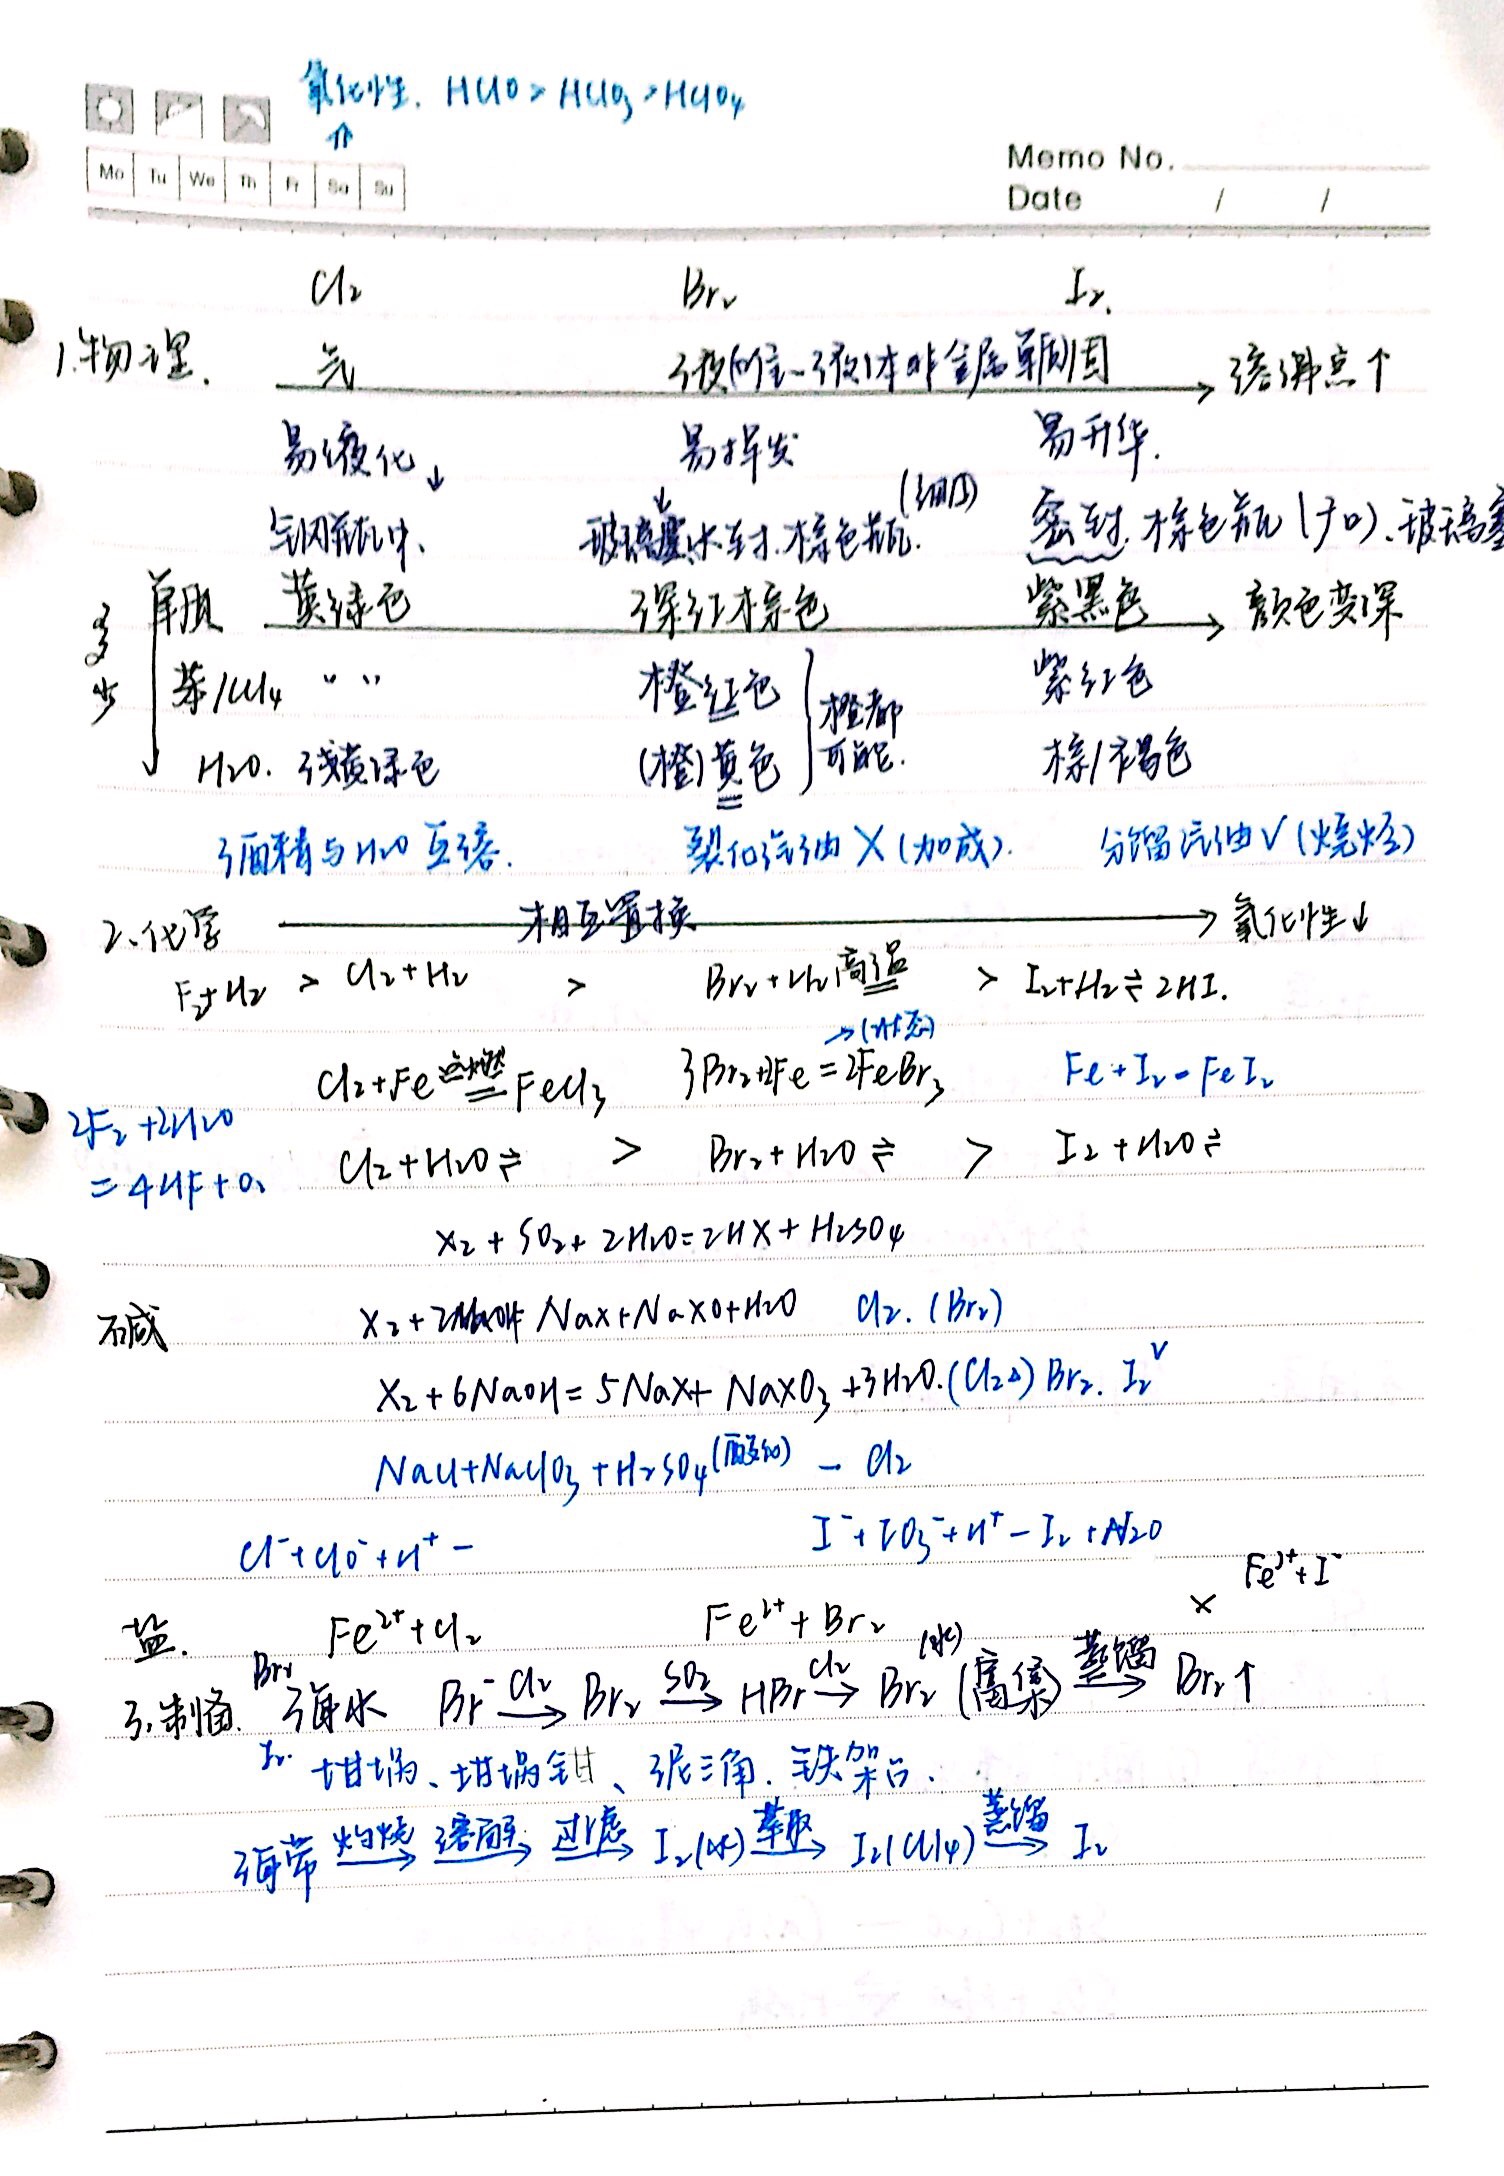 氧化性. HClO > HClO₃ > HClO₄
⇑
Mo Tu We Th Fr Sa Su
Memo No.
Date / /
Cl₂ Br₂ I₂.
1.物理. 气 液(唯一液体非金属单质) 固 → 熔沸点↑
易液化↓ 易挥发 易升华.
钢瓶中、 玻璃塞水封.棕色瓶.(细口) 密封.棕色瓶(广口).玻璃塞
单质 黄绿色 深红棕色 紫黑色 → 颜色变深
苯/CCl₄ " " 橙红色 紫红色
橙都可能.
H₂O. 浅黄绿色 (橙)黄色 棕/褐色
酒精与H₂O互溶. 裂化汽油 X (加成). 分馏汽油 √ (烷烃)
2.化学 相互置换 → 氧化性↓
F₂+H₂ > Cl₂+H₂ > Br₂+H₂ 高温 > I₂+H₂⇌2HI.
Cl₂+Fe 点燃== FeCl₃ 3Br₂+2Fe=2FeBr₃ Fe+I₂-FeI₂
2F₂+2H₂O
=4HF+O₂ Cl₂+H₂O⇌ > Br₂+H₂O⇌ > I₂+H₂O⇌
X₂+SO₂+2H₂O=2HX+H₂SO₄
碱 X₂+2NaOH NaX+NaXO+H₂O Cl₂.(Br₂)
X₂+6NaOH=5NaX+NaXO₃+3H₂O.(Cl₂△) Br₂. I₂ √
NaCl+NaClO₃+H₂SO₄(酸化) - Cl₂
Cl⁻+ClO⁻+H⁺- I⁻+IO₃⁻+H⁺-I₂+H₂O
盐. Fe²⁺+Cl₂ Fe²⁺+Br₂ × Fe²⁺+I⁻
3.制备. Br₂ 海水 Br⁻ Cl₂→ Br₂ SO₂→ HBr Cl₂→ Br₂(水)(富集) 蒸馏→ Br₂↑
I₂. 坩埚、坩埚钳、泥三角.铁架台.
海带 灼烧→ 溶解→ 过滤→ I₂(水) 萃取→ I₂(CCl₄) 蒸馏→ I₂